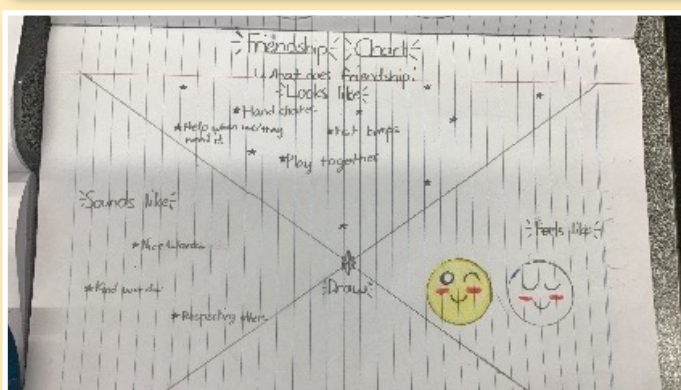 Friendship Chart
What does friendship:
Looks like
*Hand shakes
*Help when we/they
need it
*Fist bumps
*Play together
Sounds like
*Nice words
*Kind words
*Respecting others
Feels like
Draw